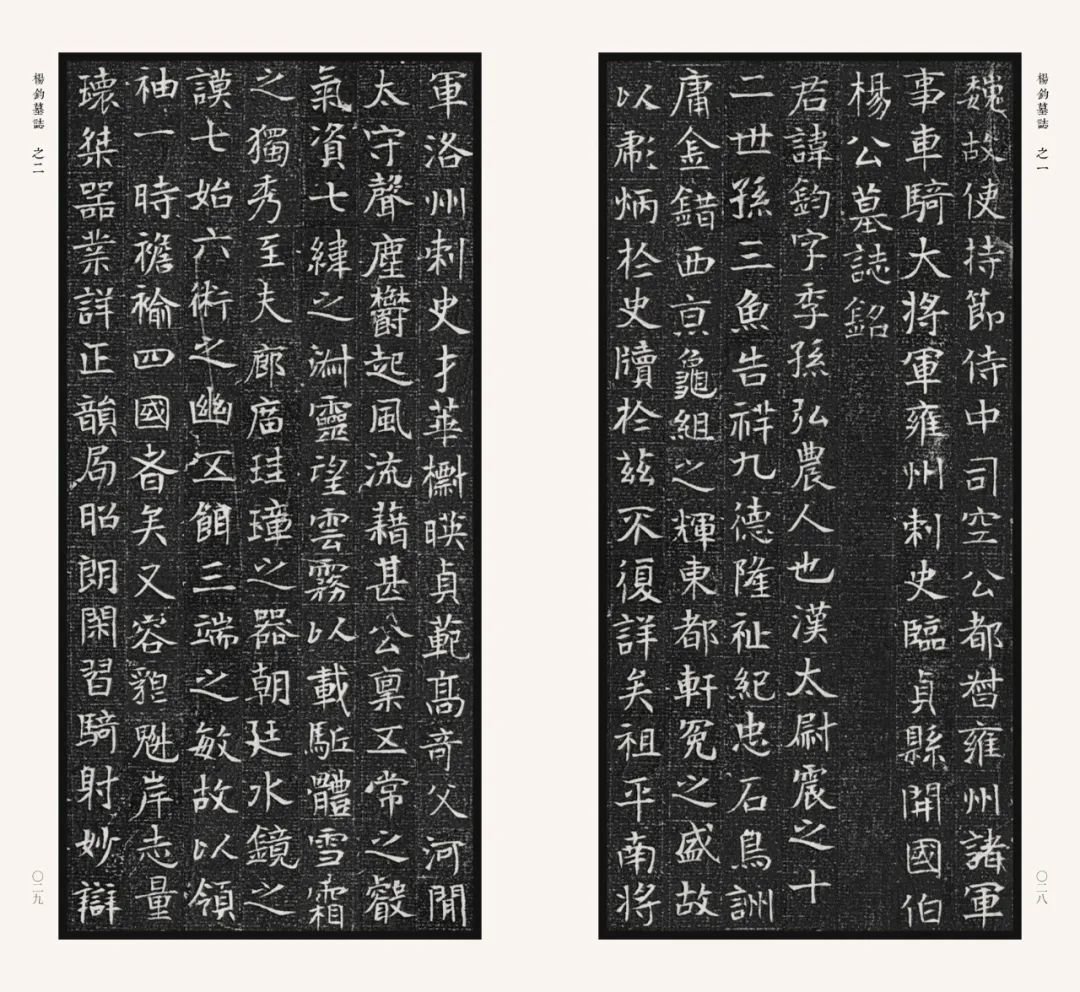 楊鈞墓誌 之一
魏故使持節侍中司空公都督雍州諸軍
事車騎大將軍雍州刺史臨貞縣開國伯
楊公墓誌銘
君諱鈞字季孫弘農人也漢太尉震之十
二世孫三魚告祥九德隆祉紀忠石鳥詶
庸金錯西京龜組之輝東都軒冕之盛故
以彪炳於史牘於茲不復詳矣祖平南將
〇二八
楊鈞墓誌 之二
軍洛州刺史才華檦暎貞範高奇父河間
太守聲塵欝起風流藉甚公禀五常之叡
氣資七緯之淵靈望雲霧以載駈體雪霜
之獨秀至夫廊廟珪璋之器朝廷水鏡之
謨七始六術之幽五餌三端之敏故以領
袖一時襜褕四國者矣又容貌魁岸志量
瓌桀器業詳正韻局昭朗閑習騎射妙辯
〇二九